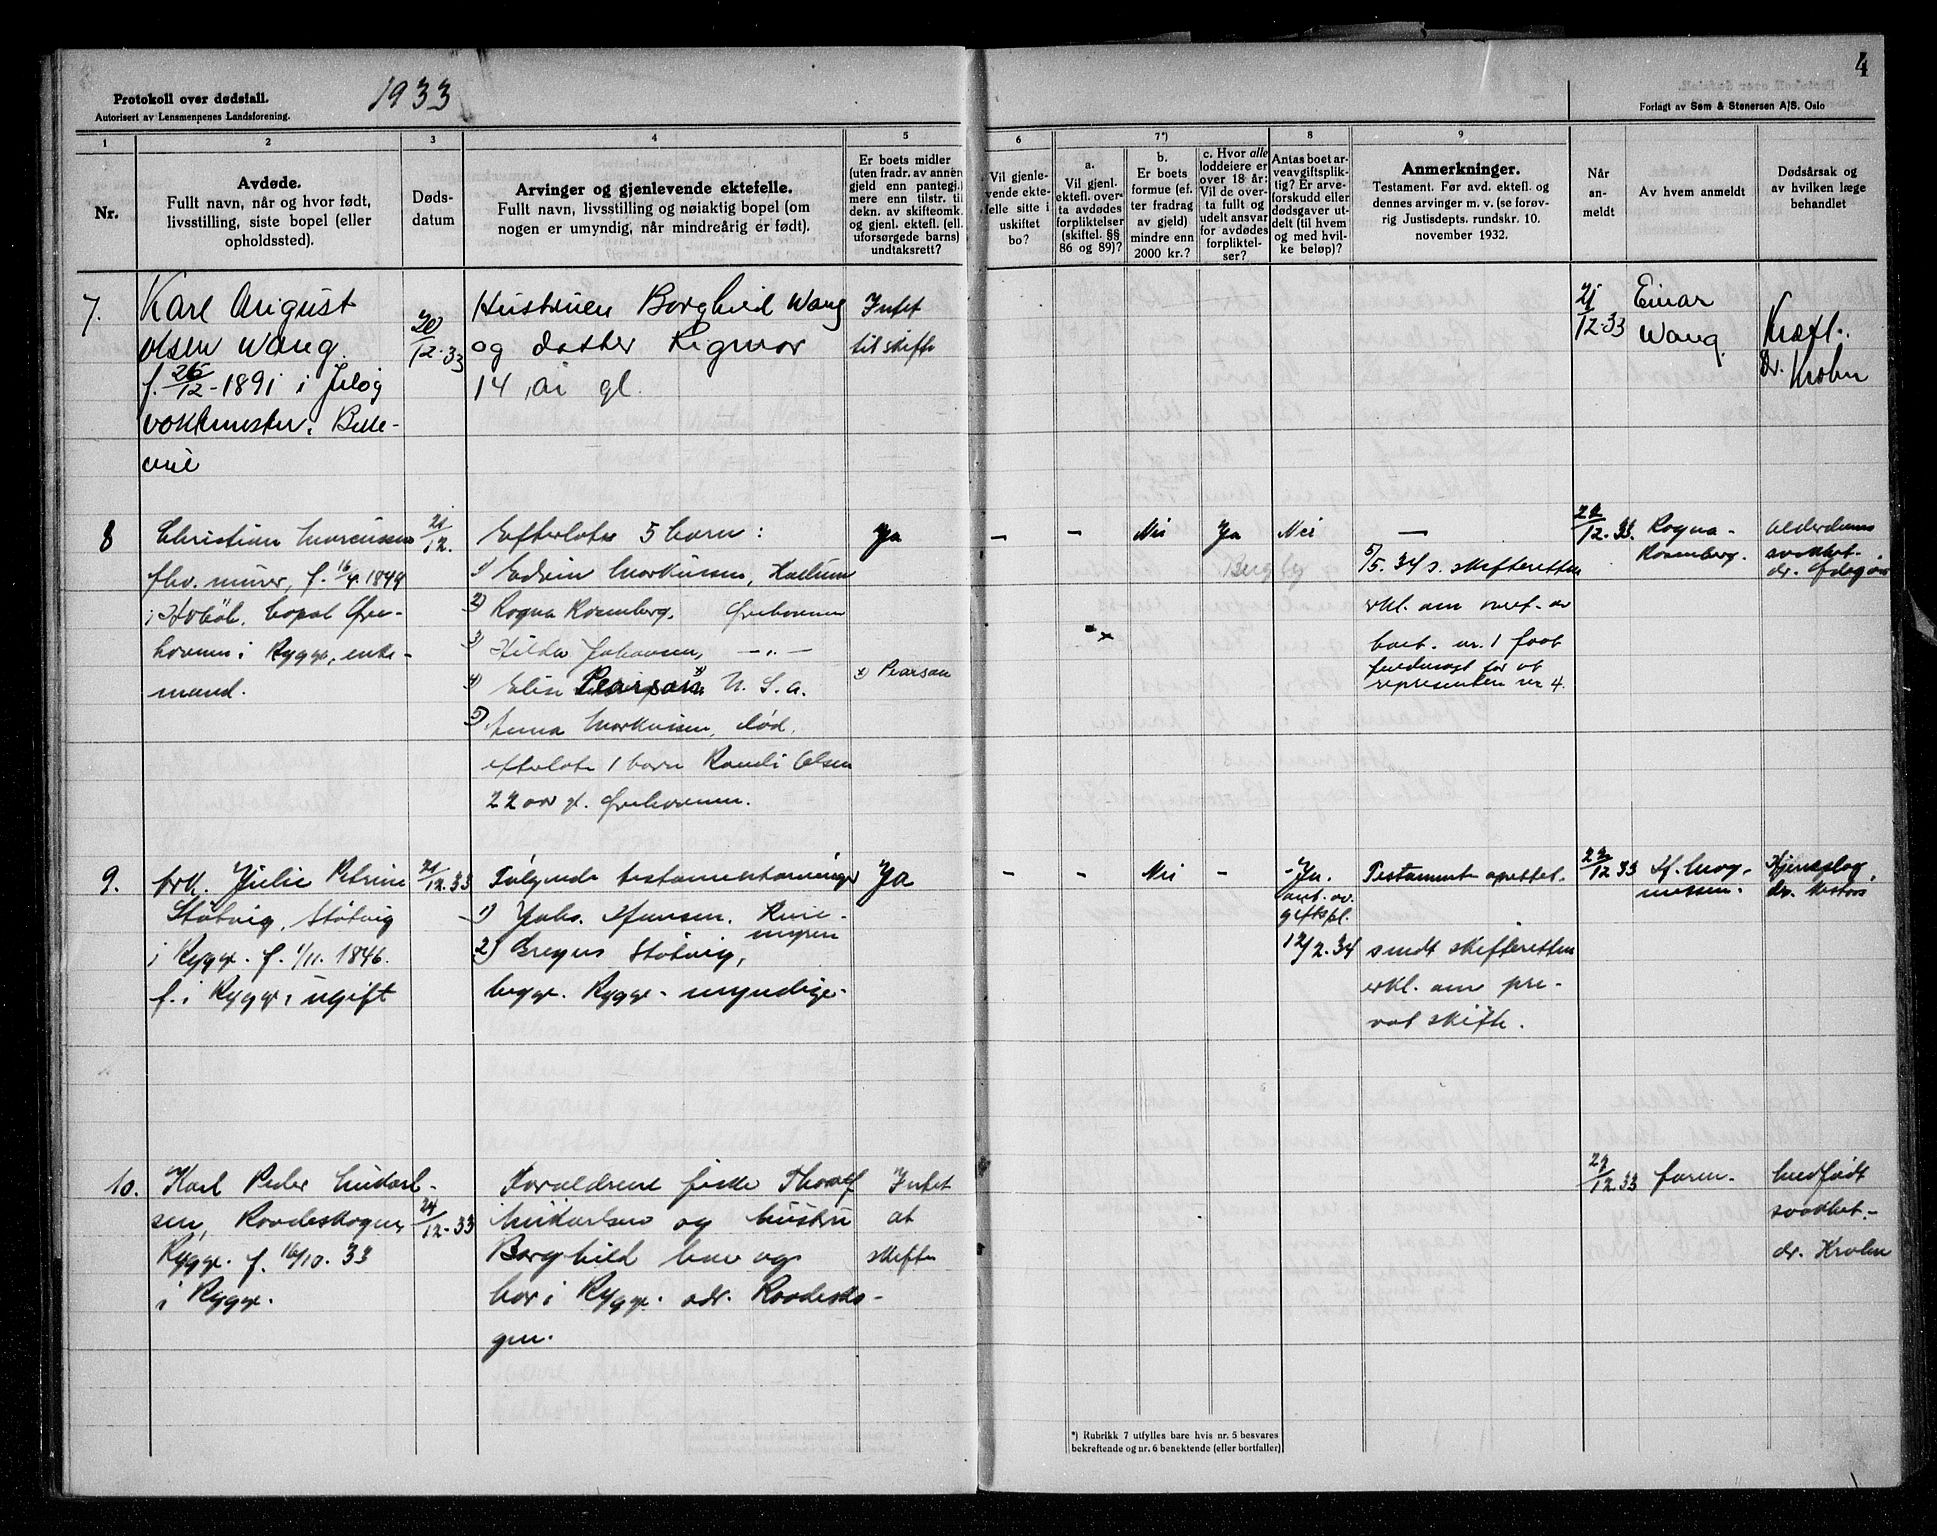 Protokoll over dødsfall.
Autorisert av Lensmennenes Landsforening.
1933
4
Forlagt av Sem & Stenersen A/S. Oslo
1
2
3
4
5
6
7*)
8
9
Nr.
Avdøde.
Fullt navn, når og hvor født,
livsstilling, siste bopel (eller
opholdssted).
Døds-
datum
Arvinger og gjenlevende ektefelle.
Fullt navn, livsstilling og nøiaktig bopel (om
nogen er umyndig, når mindreårig er født).
Er boets midler
(uten fradr. av annen
gjeld enn pantegj.)
mere enn tilstr. til
dekn. av skifteomk.
og gjenl. ektefl. (ell.
uforsørgede barns)
undtaksrett?
Vil gjenle-
vende ekte-
felle sitte i
uskiftet
bo?
a.
Vil gjenl.
ektefl. over-
ta avdødes
forpliktelser
(skiftel. §§
86 og 89)?
b.
Er boets
formue (ef-
ter fradrag
av gjeld)
mindre enn
2000 kr.?
c. Hvor alle
loddeiere er
over 18 år:
Vil de over-
ta fullt og
udelt ansvar
for avdødes
forpliktel-
ser?
Antas boet ar-
veavgiftsplik-
tig? Er arve-
forskudd eller
dødsgaver ut-
delt (til hvem
og med hvil-
ke beløp)?
Anmerkninger.
Testament. Før avd. ektefl. og
dennes arvinger m. v. (se forøv-
rig Justisdepts. rundskr. 10.
november 1932.
Når
an-
meldt
Av hvem anmeldt
Dødsårsak og
av hvilken læge
behandlet
7.
Karl August
Olsen Wang
f. 26/12-1891 i Jeløy
vaktmester. Belle-
vue
20/12-33
Hustruen Borghild Wang
og datter Rigmor
14 år gl.
Intet
til skifte
21/12-33
Einar
Wang.
Kræft.
Dr. Krohn
8
Christian Marcussen
fhv. murer, f. 16/4. 1849
i Hobøl, bopal Øre-
havnen i Rygge, enke-
mand.
21/12.
Efterlater 5 barn:
1) Edvin Markussen,
2) Ragna Rosenberg, Ørehavnen
3) Hilda Johansen, -"-
4) Elise Pearson x) U. S. a.
5) Anna Markussen, død.
efterlater 1 barn Randi Olsen
22 aar gl. Ørehavnen.
Ja
x) Pearson
-
-
Nei
Ja
Bergby
Nei
-
5/5. 34 s. skifteretten
erkl. om overt. av
boet. nr. 1 faat
fuldmagt for at
representere nr 4.
22/12-33.
Ragna
Rosenberg.
Alderdoms
svakhet.
9.
frk. Julie Petrine
Støtvig, Støtvig
i Rygge. f. 1/11. 1846.
f. i Rygge, ugift
21/12.33
Følgende testamentarvinger
1) Johs. Hansen,
2) Gregers Støtvig,
begge Rygge - myndige-
Ja
-
-
Nei
-
- Ja.
ant. av.
giftspl.
Testamente oprettet.
12/2.34 sendt skifteretten
erkl. om pri-
vat skifte.
22/12 33
H. Mag-
nussen.
Hjerneslag.
10.
Karl Peder Mikael-
sen, Raadeskogen,
Rygge. f. 16/10. 33
i Rygge.
24/12-33
Foraldrene Thoralf
Mikaelsen og hustru
Borghild bae og
bor i Rygge. adr. Raadesko-
gen.
Intet
at
skifte
27/12 33
faren.
Medfødt
svakhet.-
dr. Krohn
*) Rubrikk 7 utfylles bare hvis nr. 5 besvares
bekreftende og nr. 6 benektende (eller bortfaller)